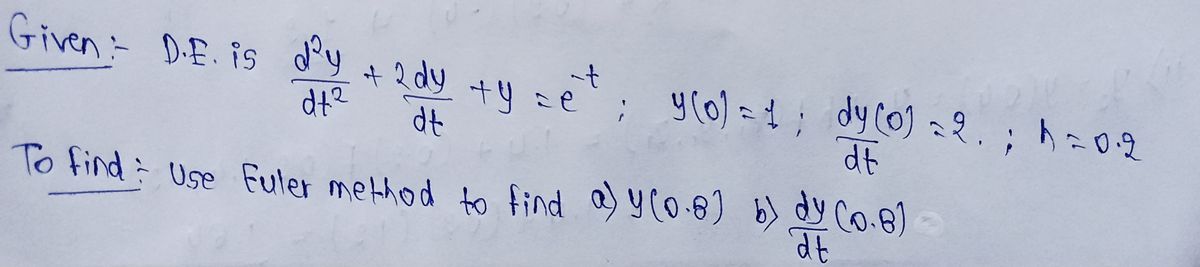 Given:- D.E. is d²y/dt² + 2dy/dt + y = e^-t ; y(0) = 1 ; dy(0)/dt = 2. ; h = 0.2
To find:- Use Euler method to find a) y(0.8) b) dy/dt (0.8)